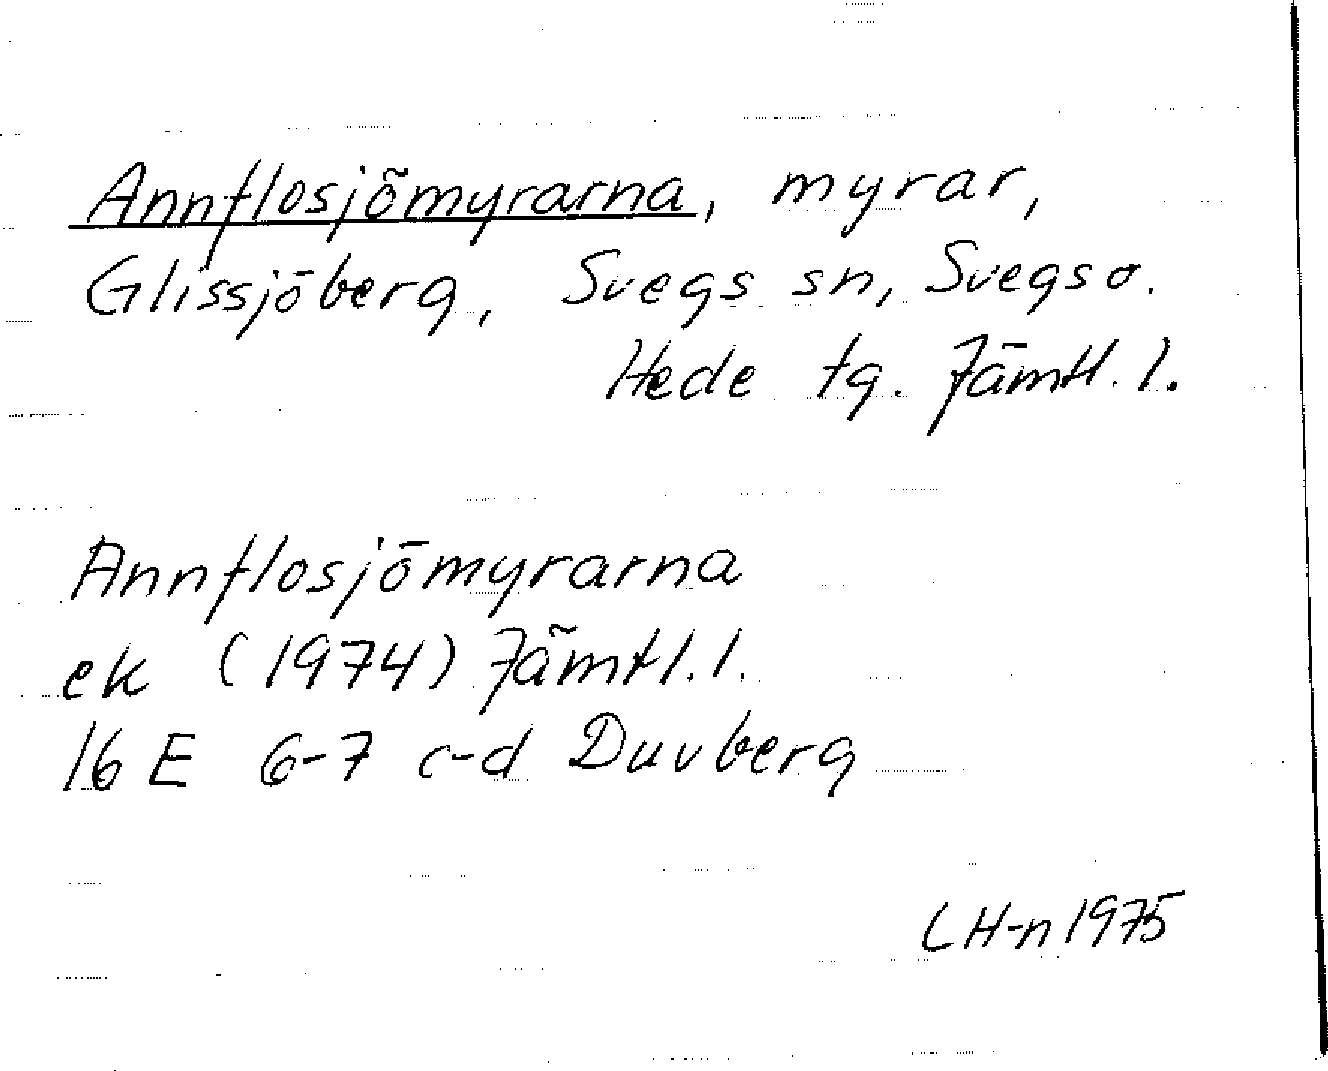 Annflosjömyrarna, myrar,
Glissjöberg, Svegs sn, Svegs o.
Hede tg. Jämtl. l.
Annflosjömyrarna
ek (1974) Jämtl. l.
16 E 6-7 c-d Duvberg
LH-n 1975